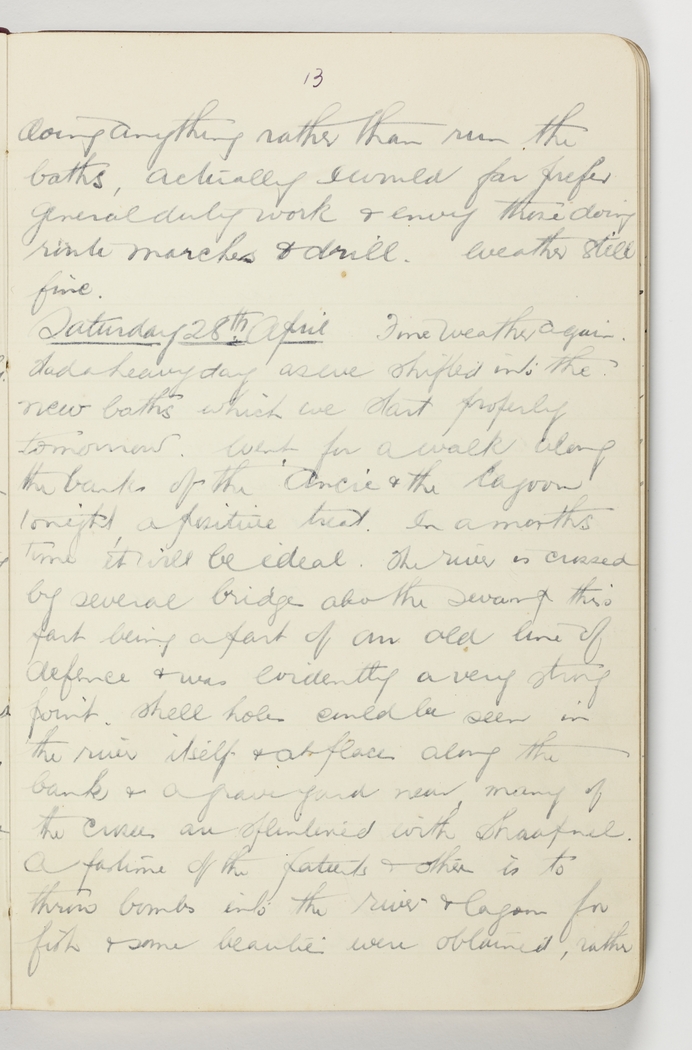 13
doing anything rather than run the
baths, actually I would far prefer
general duty work & envy those doing
route marches & drill. Weather still
fine.
Saturday 28th April Fine weather again.
Had a heavy day as we shifted into the
new baths which we start properly
tomorrow. Went for a walk along
the banks of the Ancre & the lagoon
tonight a positive treat. In a months
time it will be ideal. The river is crossed
by several bridges also the swamp this
part being a part of an old line of
defence & was evidently a very strong
point. Shell holes could be seen in
the river itself & at places along the
bank & a graveyard near, many of
the crosses are splintered with shrapnel.
A pastime of the patients & others is to
throw bombs into the river & lagoon for
fish & some beauties were obtained, rather